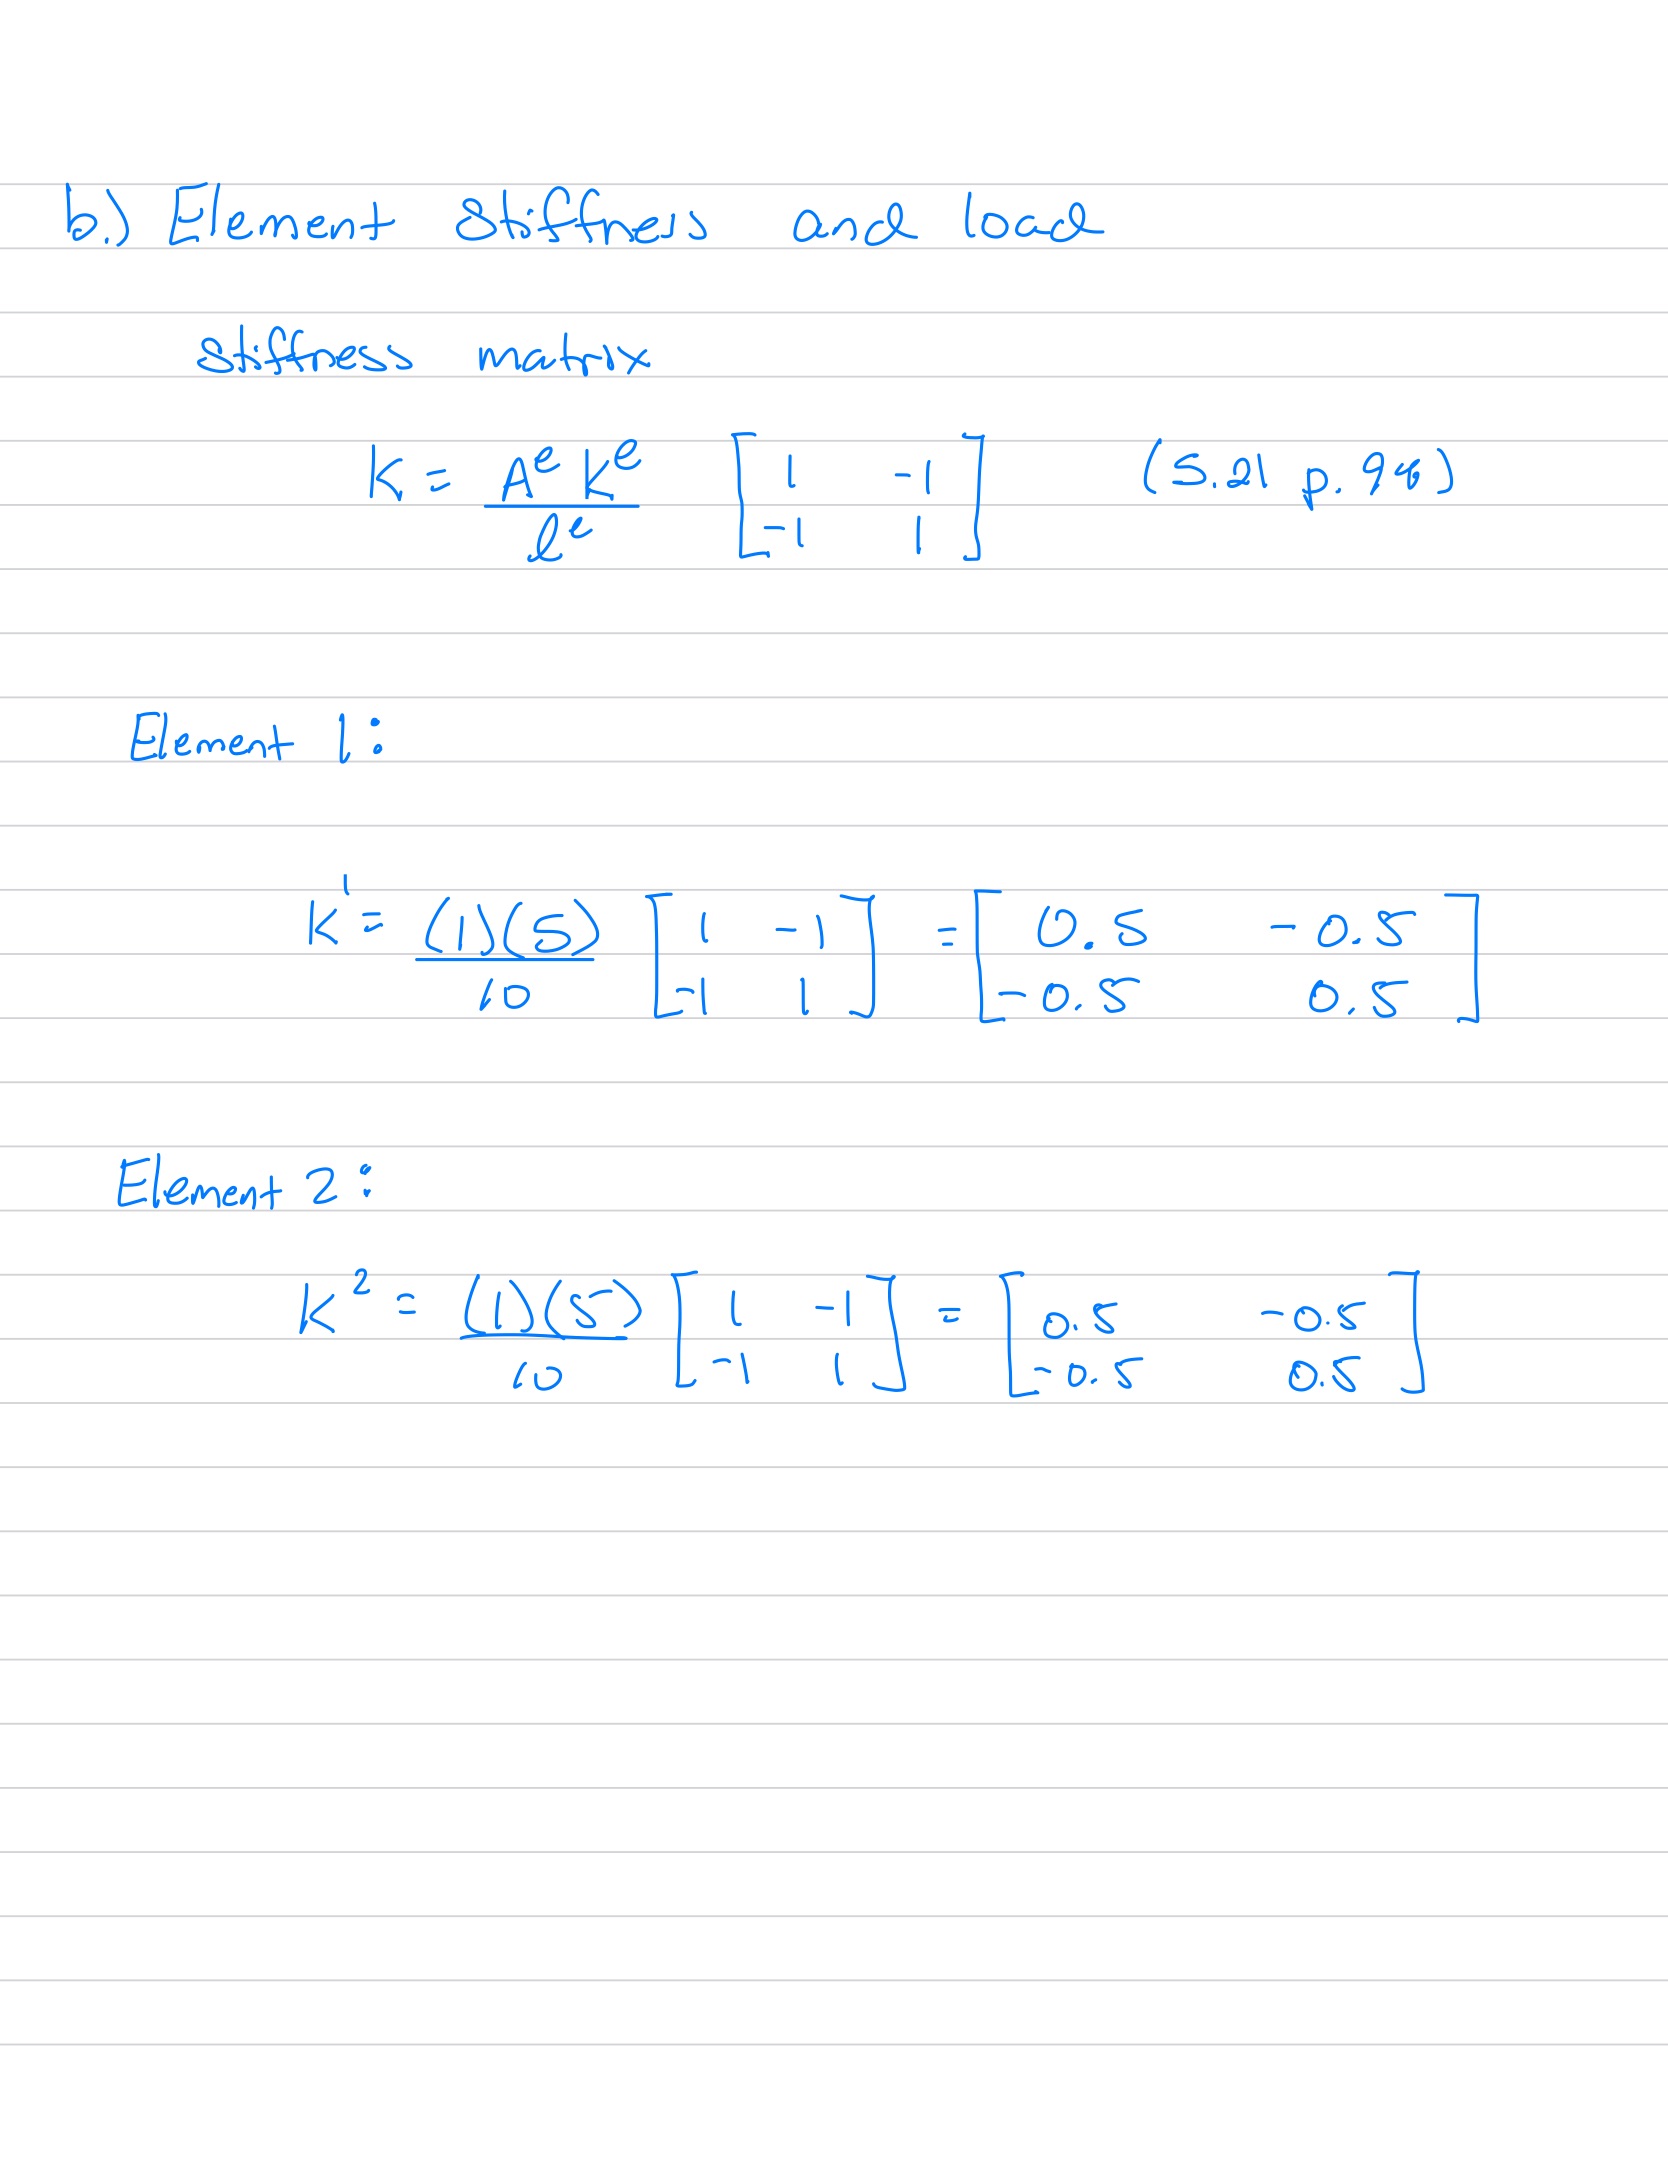 b.) Element stiffness and load
stiffness matrix
K = A^e k^e / l^e [1 -1; -1 1] (5.21 p. 98)
Element 1:
K^1 = (1)(5) / 10 [1 -1; -1 1] = [0.5 -0.5; -0.5 0.5]
Element 2:
K^2 = (1)(5) / 10 [1 -1; -1 1] = [0.5 -0.5; -0.5 0.5]